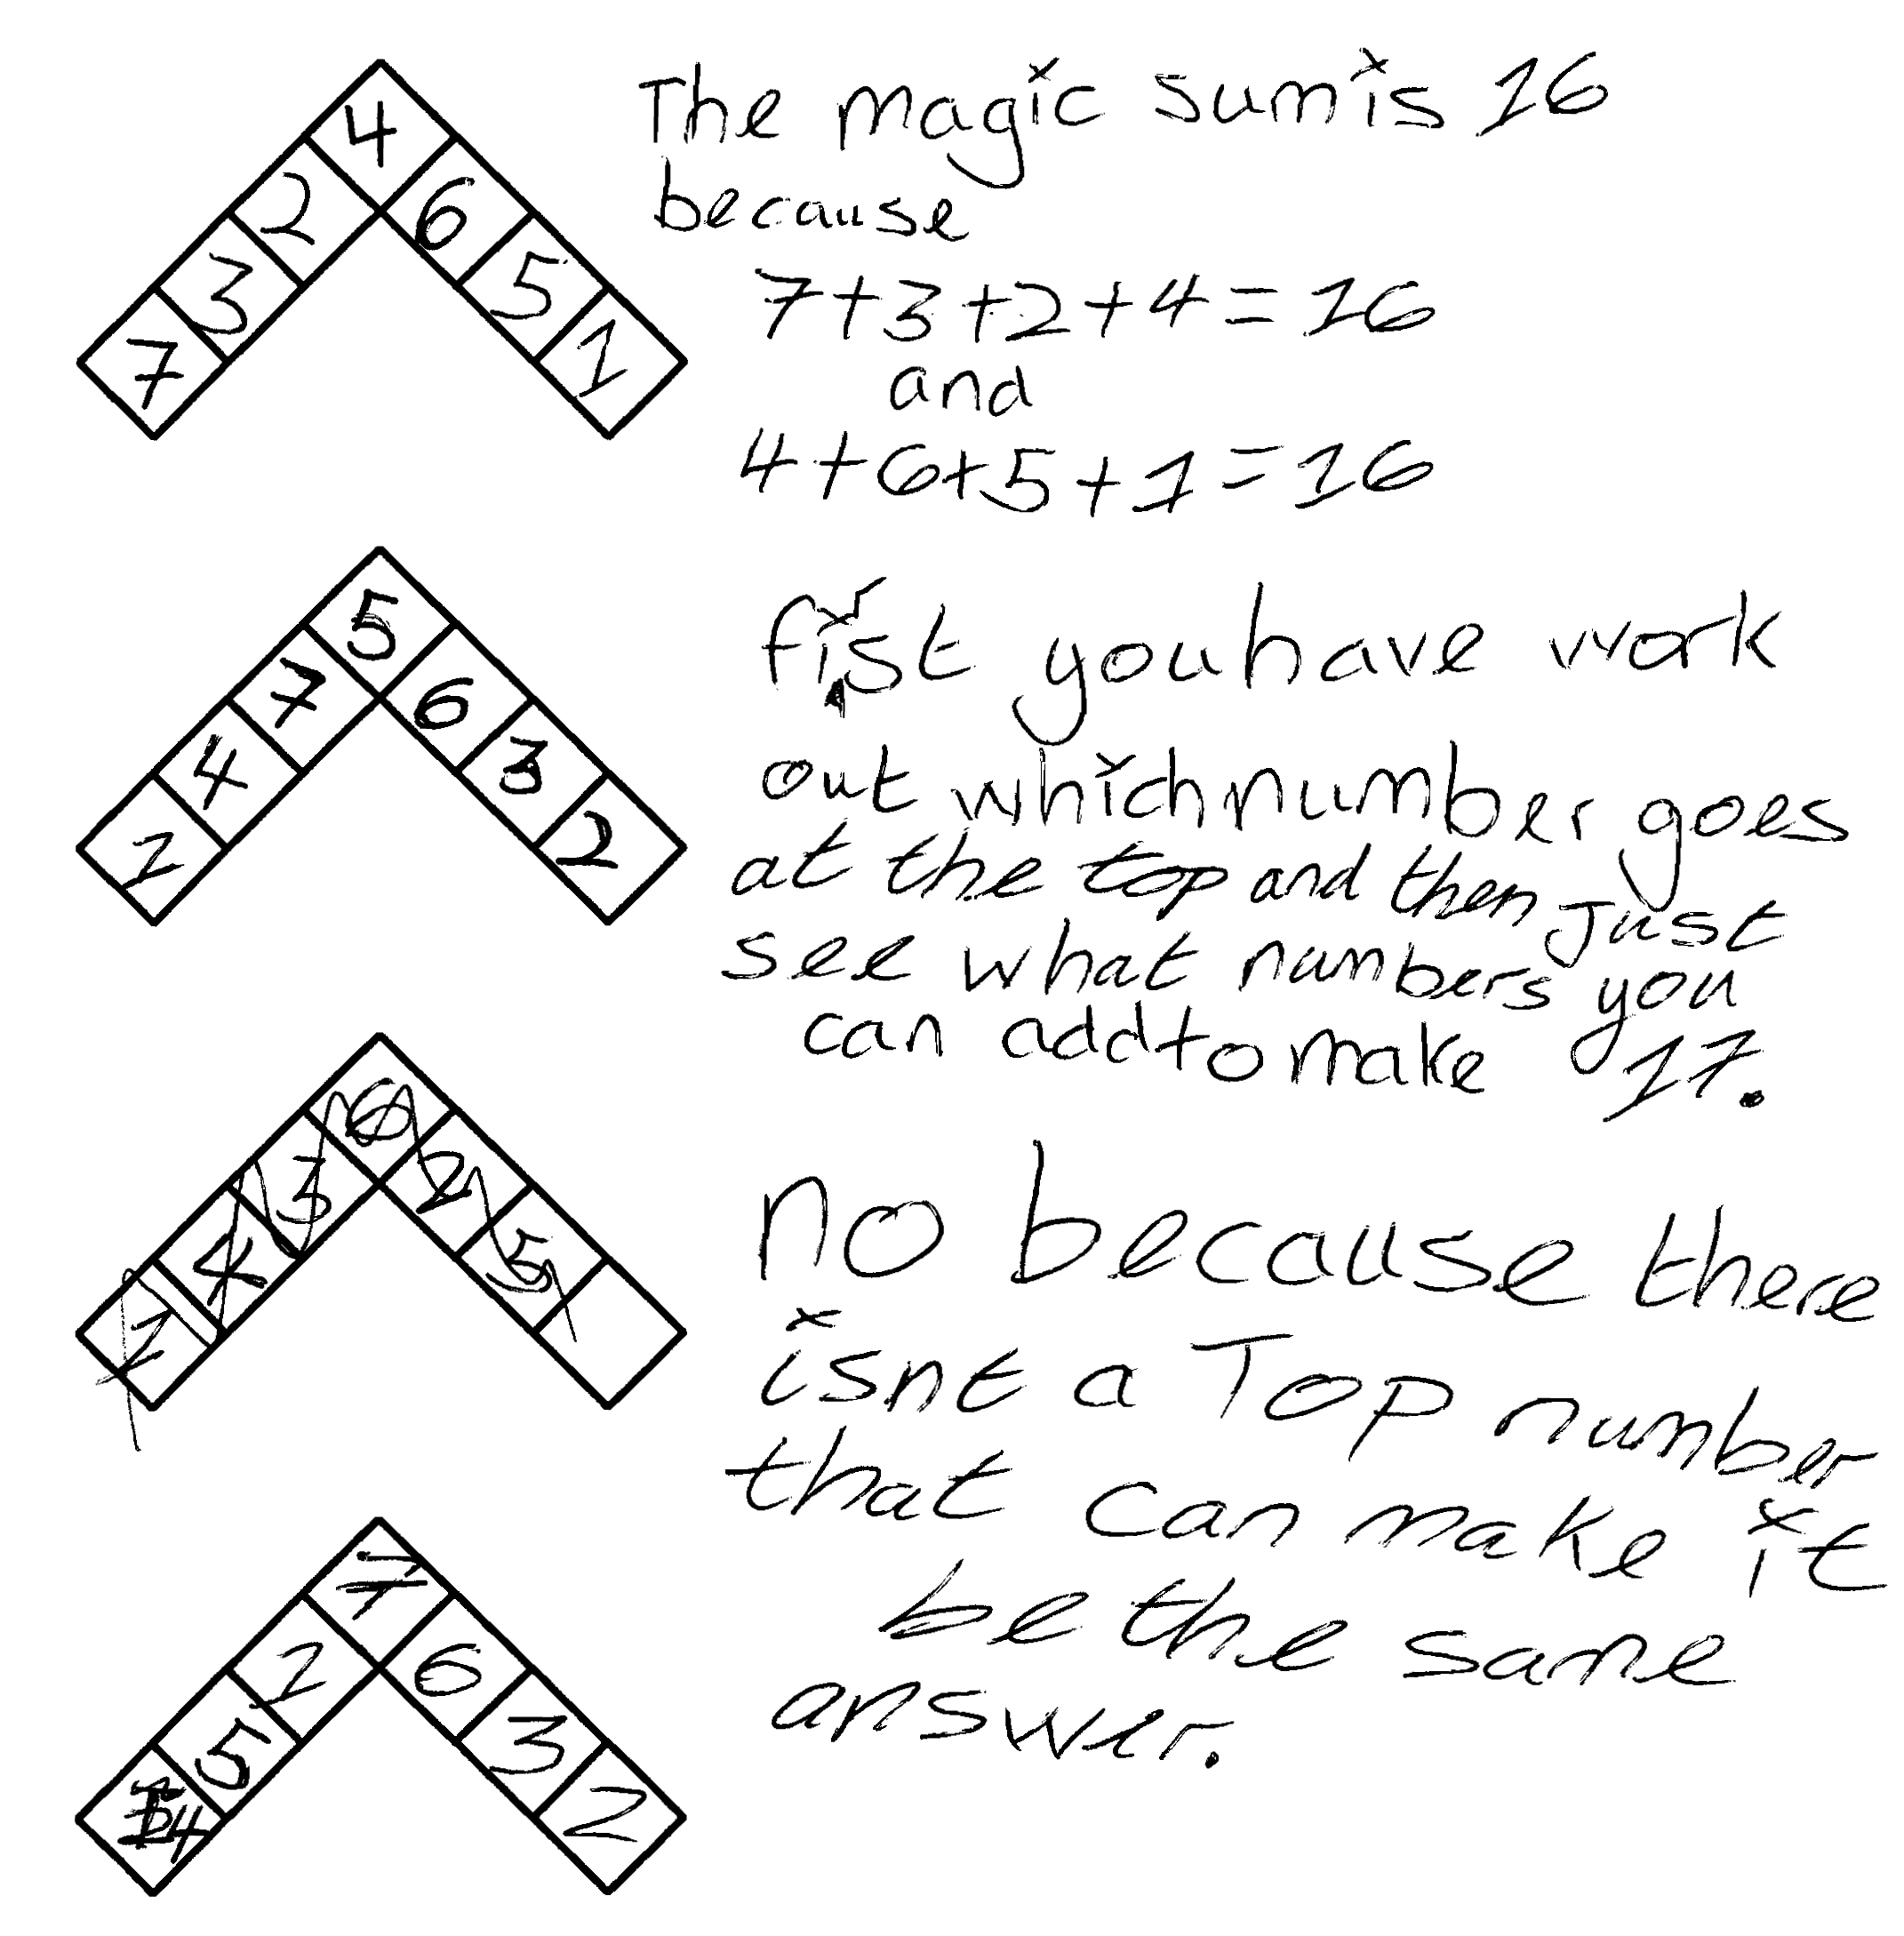 4
2 6
3 5
7 1
The magic sum is 16
because
7+3+2+4=16
and
4+6+5+1=16
5
7 6
4 3
1 2
first you have work
out which number goes
at the top and then Just
see what numbers you
can add to make 17.
6
3 2
4 5
1
no because there
isnt a Top number
that can make it
be the same
answer.
7
1 6
5 3
4 2